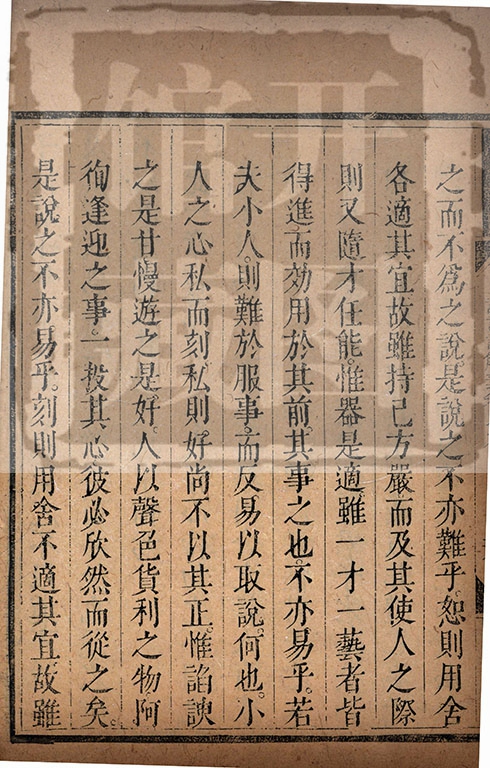 之而不爲之說。是說之不亦難乎。恕則用舍
各適其宜。故雖持己方嚴。而及其使人之際
則又隨才任能。惟器是適。雖一才一藝者。皆
得進而効用於其前。其事之也。不亦易乎。若
夫小人。則難於服事。而反易以取說。何也。小
人之心私而刻。私則好尚不以其正。惟諂諛
之是甘。慢遊之是好。人以聲色貨利之物。阿
徇逢迎之事。一投其心。彼必欣然而從之矣。
是說之不亦易乎。刻則用舍不適其宜。故雖